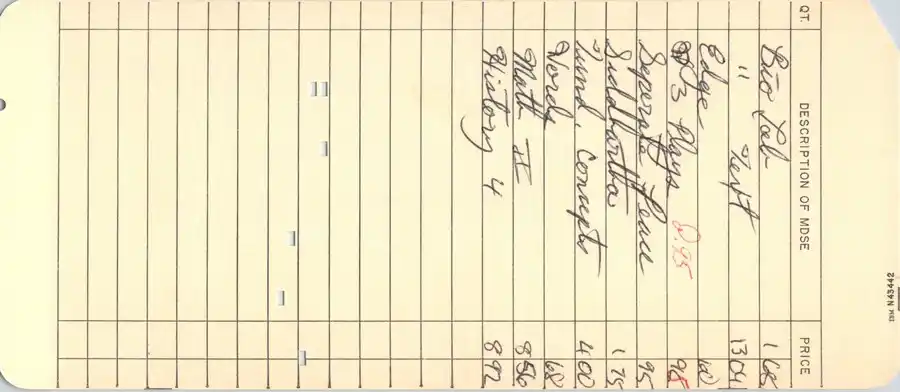 QT. DESCRIPTION OF MDSE PRICE
Bio Lab 1 68
" Text 13 04
Edge
3 Plays 2.95 95
Seperate Peace 95
Siddhartha 1 75
Fund. Concepts 4 00
Words 68
Math II 8 56
History 4 8 92
IBM N43442